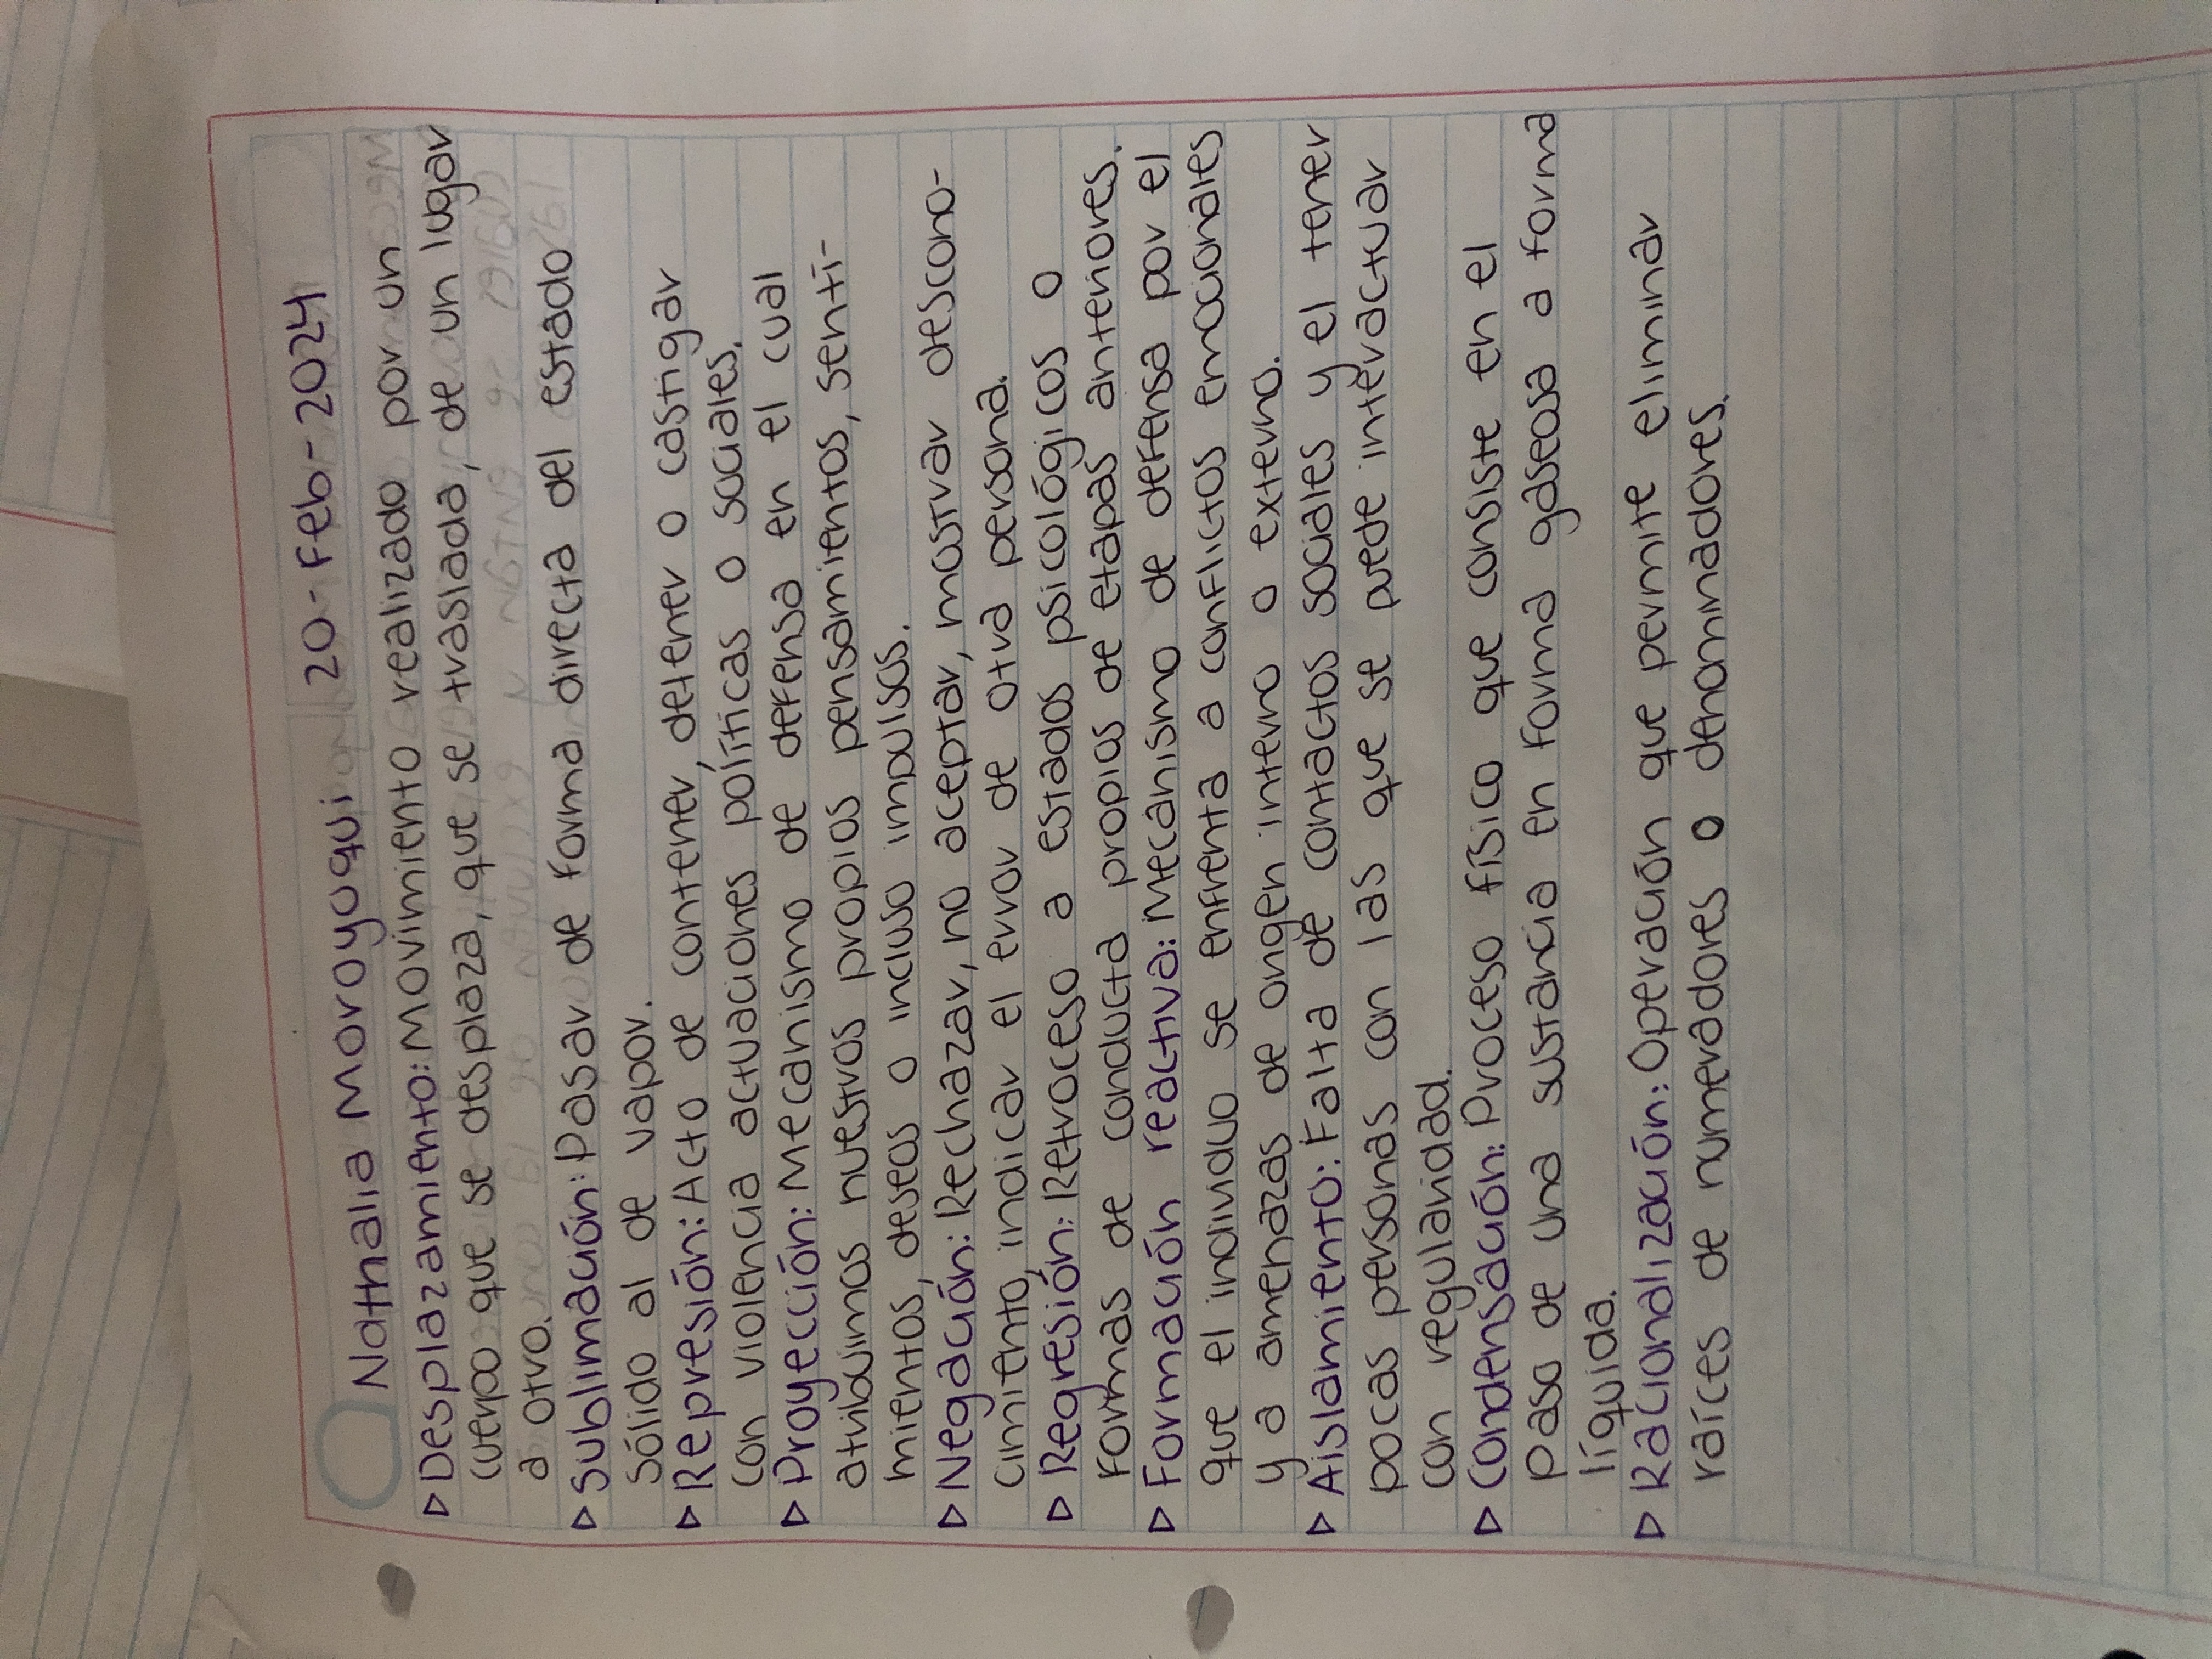 Nathalia Moroyoqui 20-Feb-2024
▷ Desplazamiento: Movimiento realizado por un
cuerpo que se desplaza, que se traslada, de un lugar
a otro.
▷ Sublimación: Pasar de forma directa del estado
sólido al de vapor.
▷ Represión: Acto de contener, detener o castigar
con violencia actuaciones políticas o sociales.
▷ Proyección: Mecanismo de defensa en el cual
atribuimos nuestros propios pensamientos, senti-
mientos, deseos o incluso impulsos.
▷ Negación: Rechazar, no aceptar, mostrar descono-
cimiento, indicar el error de otra persona.
▷ Regresión: Retroceso a estados psicológicos o
formas de conducta propios de etapas anteriores.
▷ Formación reactiva: Mecanismo de defensa por el
que el individuo se enfrenta a conflictos emocionales
y a amenazas de origen interno o externo.
▷ Aislamiento: Falta de contactos sociales y el tener
pocas personas con las que se puede interactuar
con regularidad.
▷ Condensación: Proceso físico que consiste en el
paso de una sustancia en forma gaseosa a forma
líquida.
▷ Racionalización: Operación que permite eliminar
raíces de numeradores o denominadores.